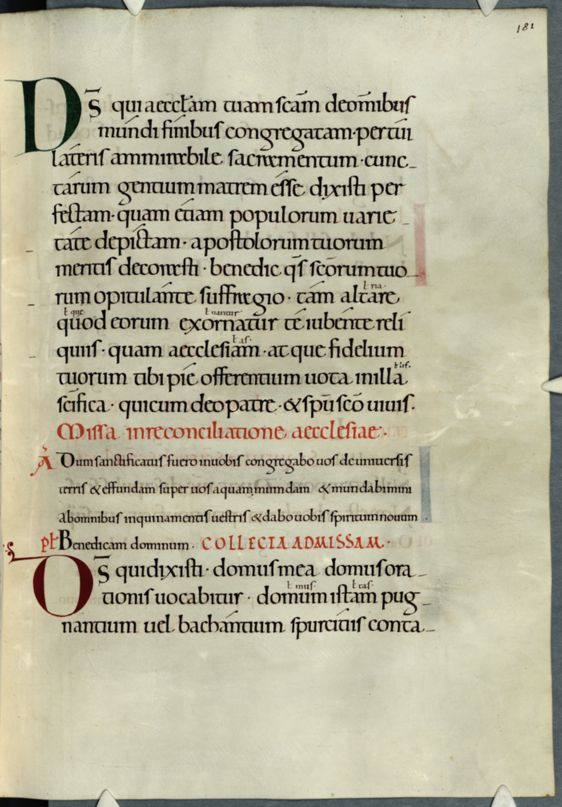 181
Ds̄ qui aeccl̄am tuam sc̄am deom̄ibus
mundi finibus congregatam · per tui
lateris ammirabile sacramentum · cunc-
tarum gentium matrem esse dixisti per
festam · quam etiam populorum uarie
tate depictam · apostolorum tuorum
meritis decorasti · benedic q̄s sc̄orum tuo
rum opitulante suffragio · tam altare
quod eorum exornatur te iubente reli
quiis · quam aecclesiam · atque fidelium
tuorum tibi pie offerentium uota in illa
sc̄ifica · qui cum deo patre · & sp̄u sc̄o uiuis ·
Missa in reconciliatione aecclesiae ·
A Dum sanctificatus fuero in uobis congregabo uos de uniuersis
terris & effundam super uos aquam mundam & mundabimini
ab omnibus inquinamentis uestris & dabo uobis spiritum nouum ·
pt Benedicam dominum · COLLECTA AD MISSAM ·
Ds̄ qui dixisti · domus mea domus ora
tionis uocabitur · domum istam pug-
nantium uel bachantium spurcitiis conta-